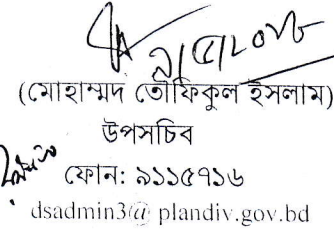 (মোহাম্মদ তৌফিকুল ইসলাম)
উপসচিব
ফোন: ৯১১৫৭১৬
dsadmin3@ plandiv.gov.bd